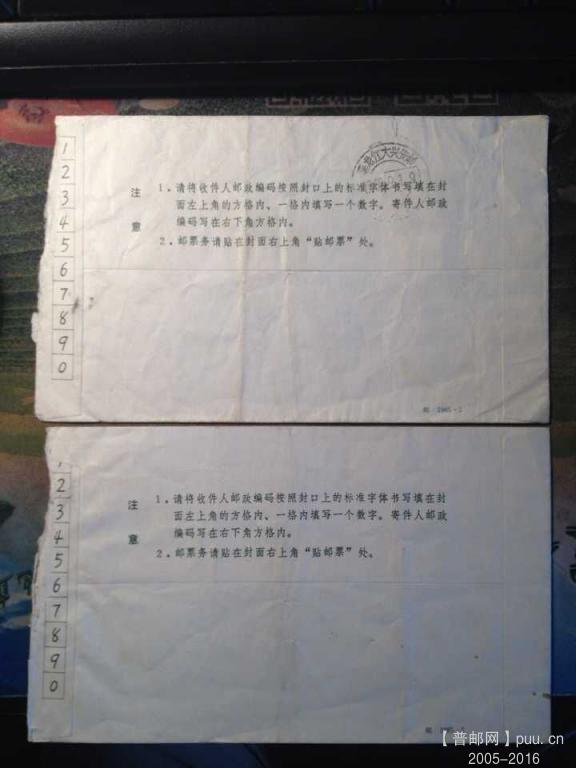 1
2
3
4
5
6
7
8
9
0
注
意
1。请将收件人邮政编码按照封口上的标准字体书写填在封
面左上角的方格内、一格内填写一个数字。寄件人邮政
编码写在右下角方格内。
2。邮票务请贴在封面右上角“贴邮票”处。
黑龙江大兴安岭
2
3
4
5
6
7
8
9
0
注
意
1。请将收件人邮政编码按照封口上的标准字体书写填在封
面左上角的方格内、一格内填写一个数字。寄件人邮政
编码写在右下角方格内。
2。邮票务请贴在封面右上角“贴邮票”处。
【普邮网】puu.cn
2005-2016